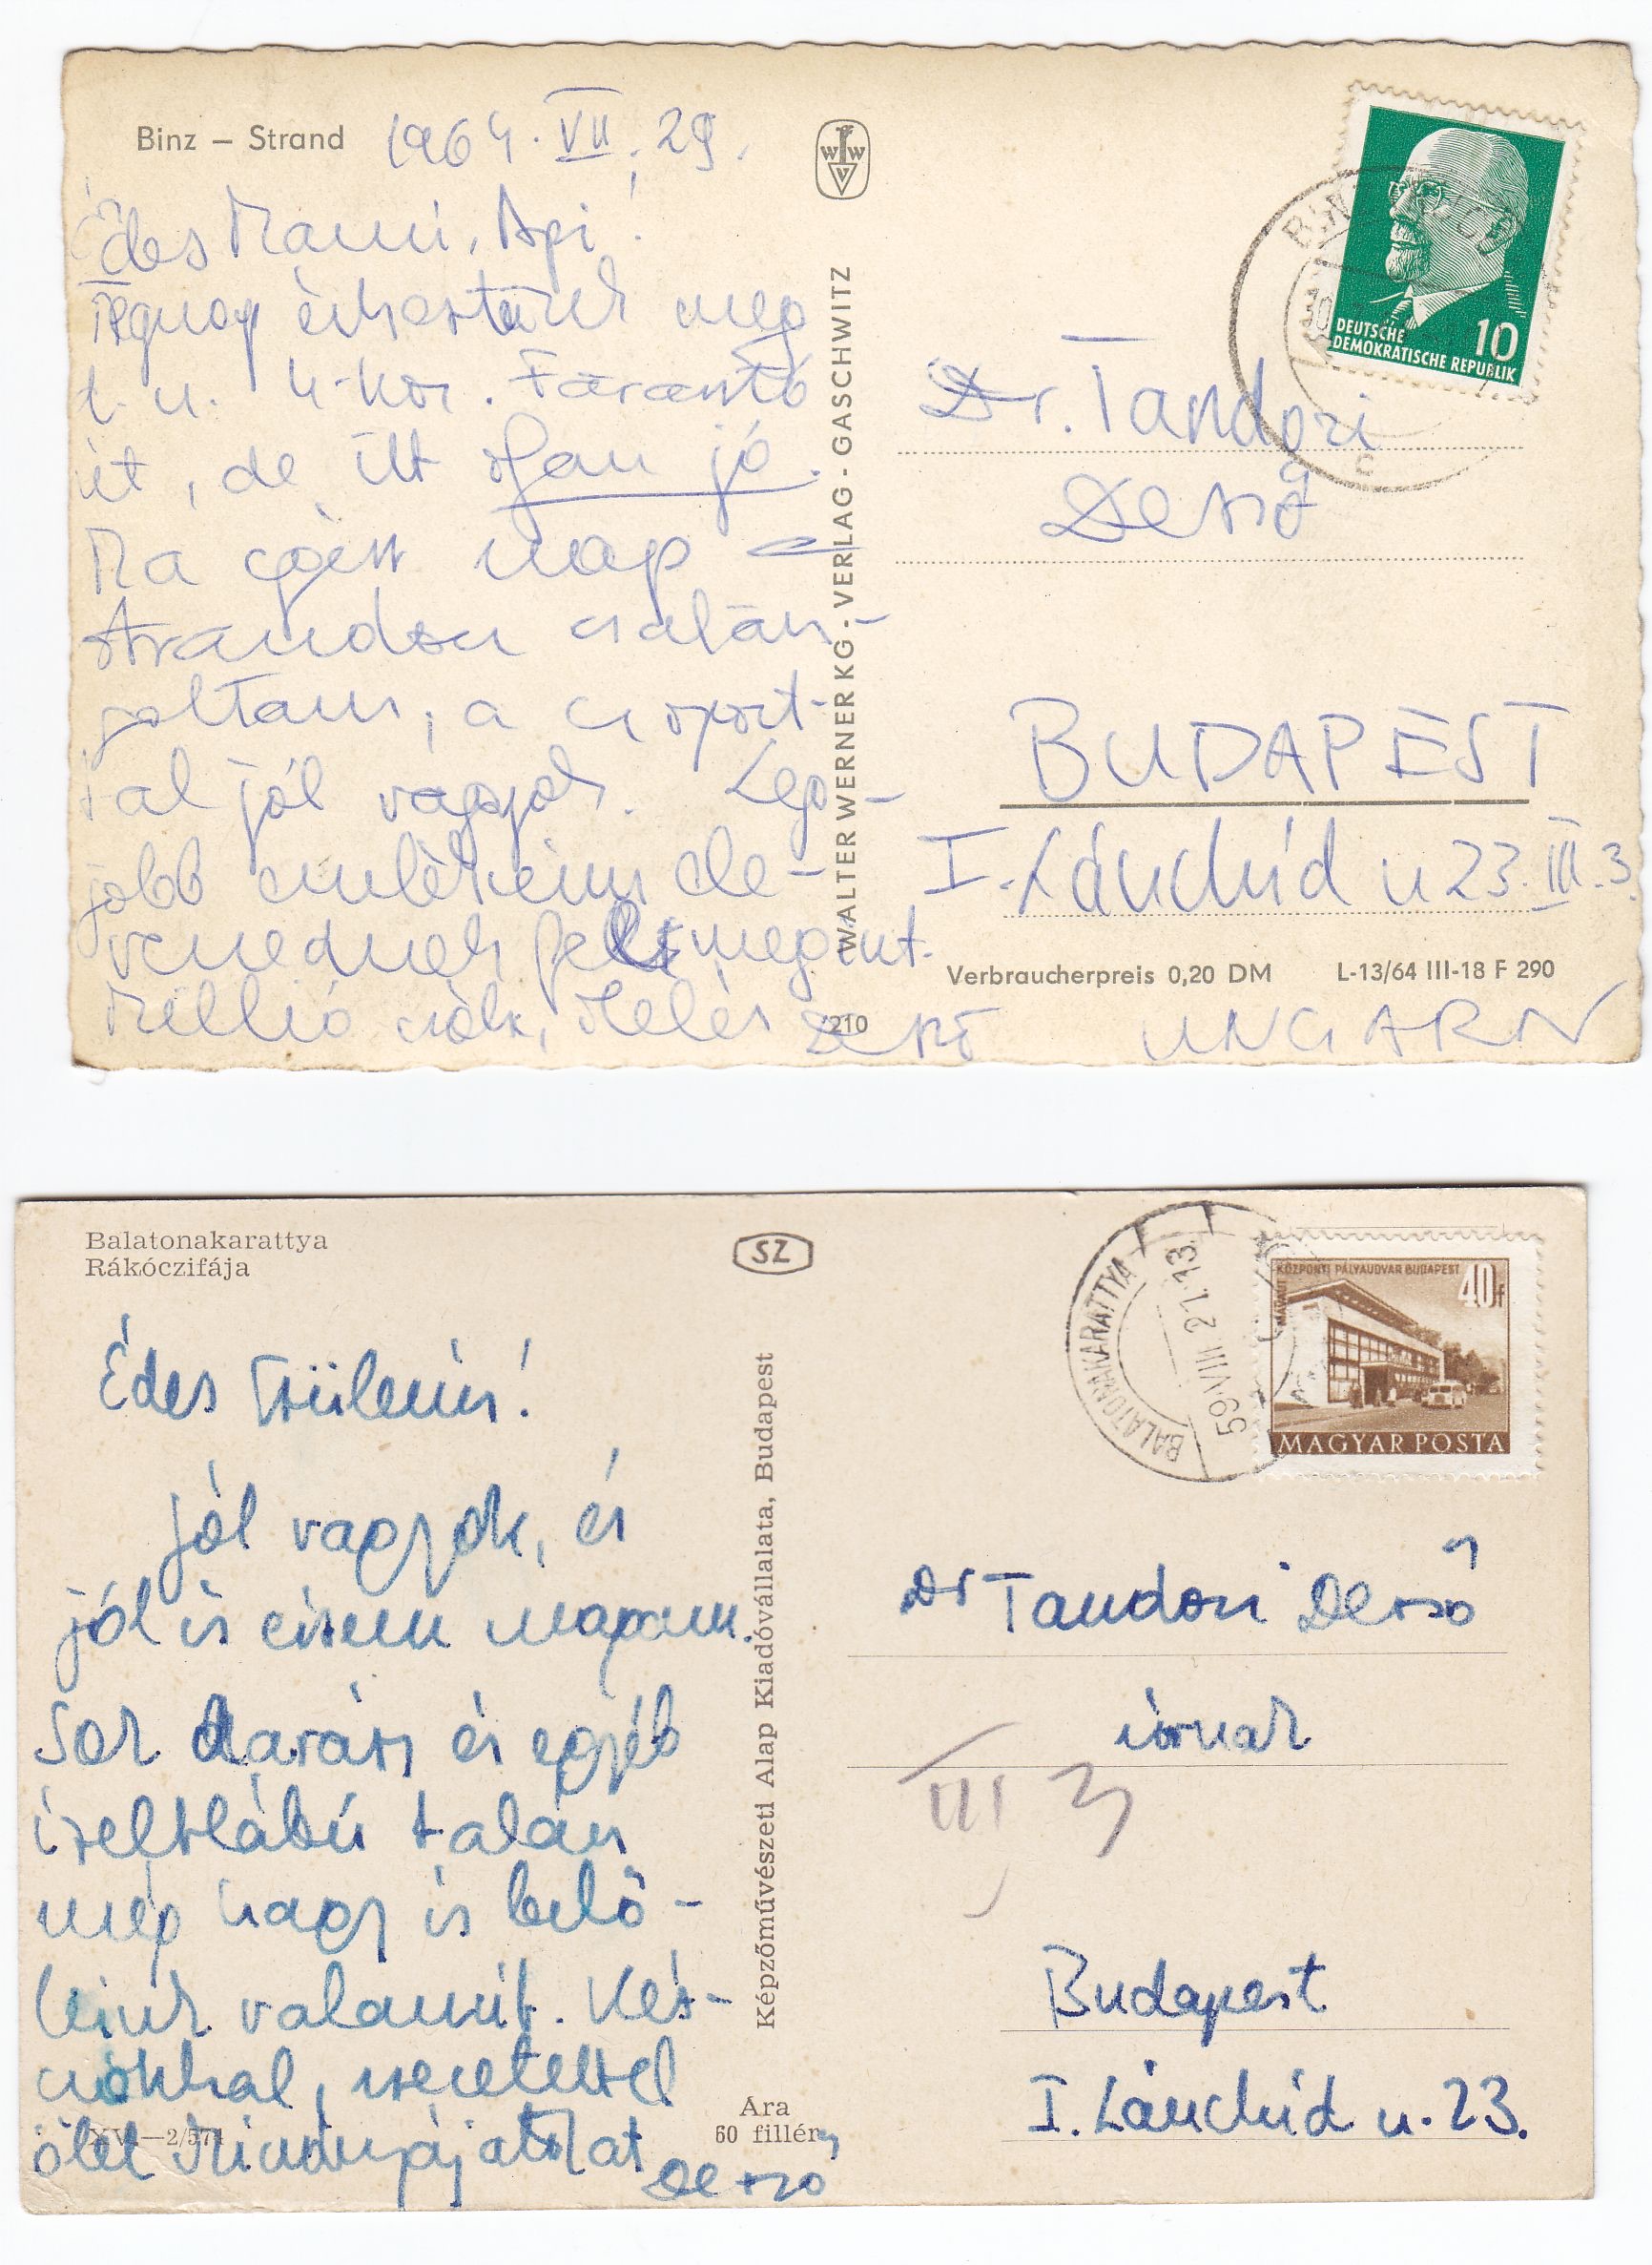 Binz – Strand 1964. VII. 29.
Édes Mami, Api!
Tegnap érkeztünk meg
d. u. 4-kor. Fárasztó
út, de itt olyan jó.
Ma egész nap a
strandon csalán-
goltam, a csoport-
tal jól vagyok. Leg-
jobb emlékeim ele-
venednek fel megint.
Millió csók, ölelés Dezső
WALTER WERNER KG · VERLAG · GASCHWITZ
W W V
210
DEUTSCHE
DEMOKRATISCHE REPUBLIK
10
30
Dr. Tandori
Dezső
BUDAPEST
I. Lánchíd u 23. III. 3.
Verbraucherpreis 0,20 DM L-13/64 III-18 F 290
UNGARN
Balatonakarattya
Rákóczifája
SZ
Édes Szüleim!
Jól vagyok, és
jól is érzem magam.
Sok darázs és egyéb
ízeltlábú talán
még hagy is belő-
lünk valamit. Kéz-
csókkal, szeretettel
ölel Mindnyájatokat
Dezső
XV.—2/574
Ára
60 fillér
Képzőművészeti Alap Kiadóvállalata, Budapest
BALATONAKARATTYA
59 VIII 21. 13
KÖZPONTI PÁLYAUDVAR BUDAPEST
40f
MAGYAR POSTA
Dr Tandori Dezső
úrnak
III 3
Budapest
I. Lánchíd u. 23.